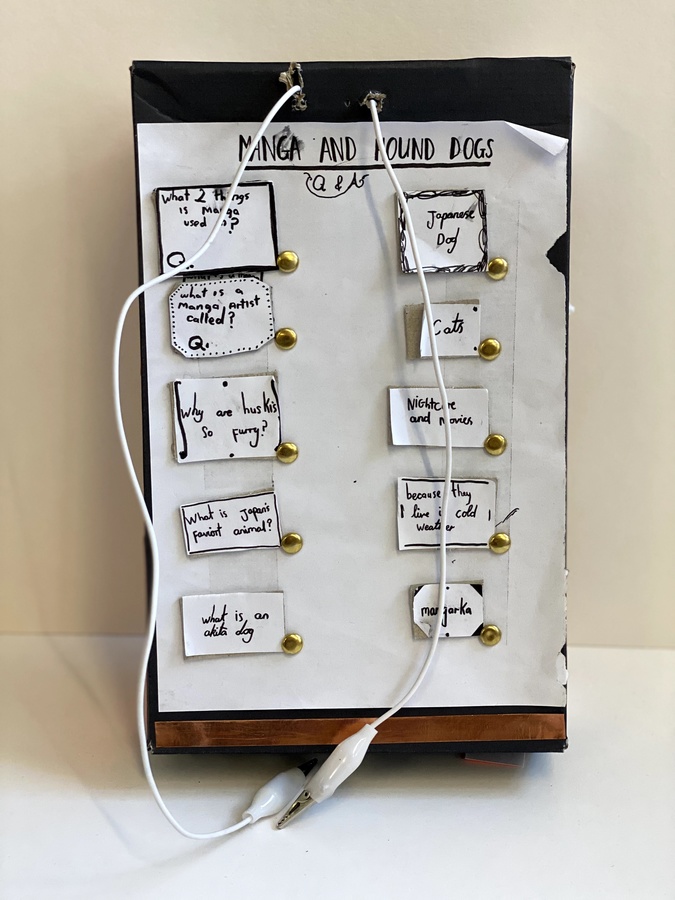 MANGA AND HOUND DOGS
Q & A's
What 2 things
is Manga
used in?
Q.
what is a
Manga Artist
called?
Q.
Why are huskis
so furry?
What is Japan's
faviort animal?
what is an
akita dog
Japanese
Dog
Cats
Nightcore
and Movies
because they
live in cold
weather
mangarka